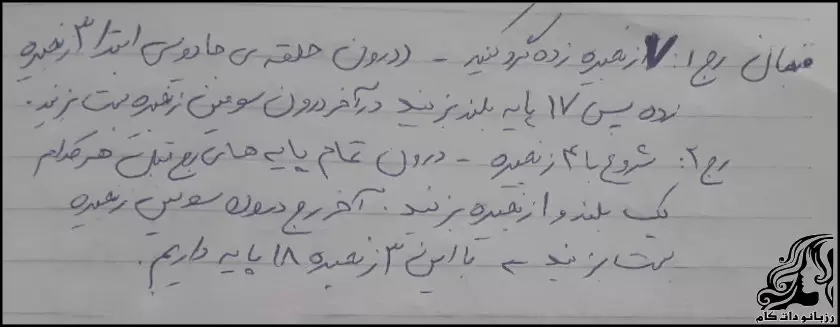 فنجان رج ۱: ۷ زنجیره زده گرد کنید - ((درون حلقه ی جادویی ابتدا ۳ زنجیره
زده پس ۱۷ پایه بلند بزنید در آخر درون سومین زنجیره بست بزنید.
رج ۲: شروع با ۴ زنجیره - درون تمام پایه های رج قبل هر کدام
یک بلند و ۱ زنجیره بزنید. آخر رج درون سومین زنجیره
بست بزنید با این ۳ زنجیره ۱۸ پایه داریم.
رزبانو دات کام